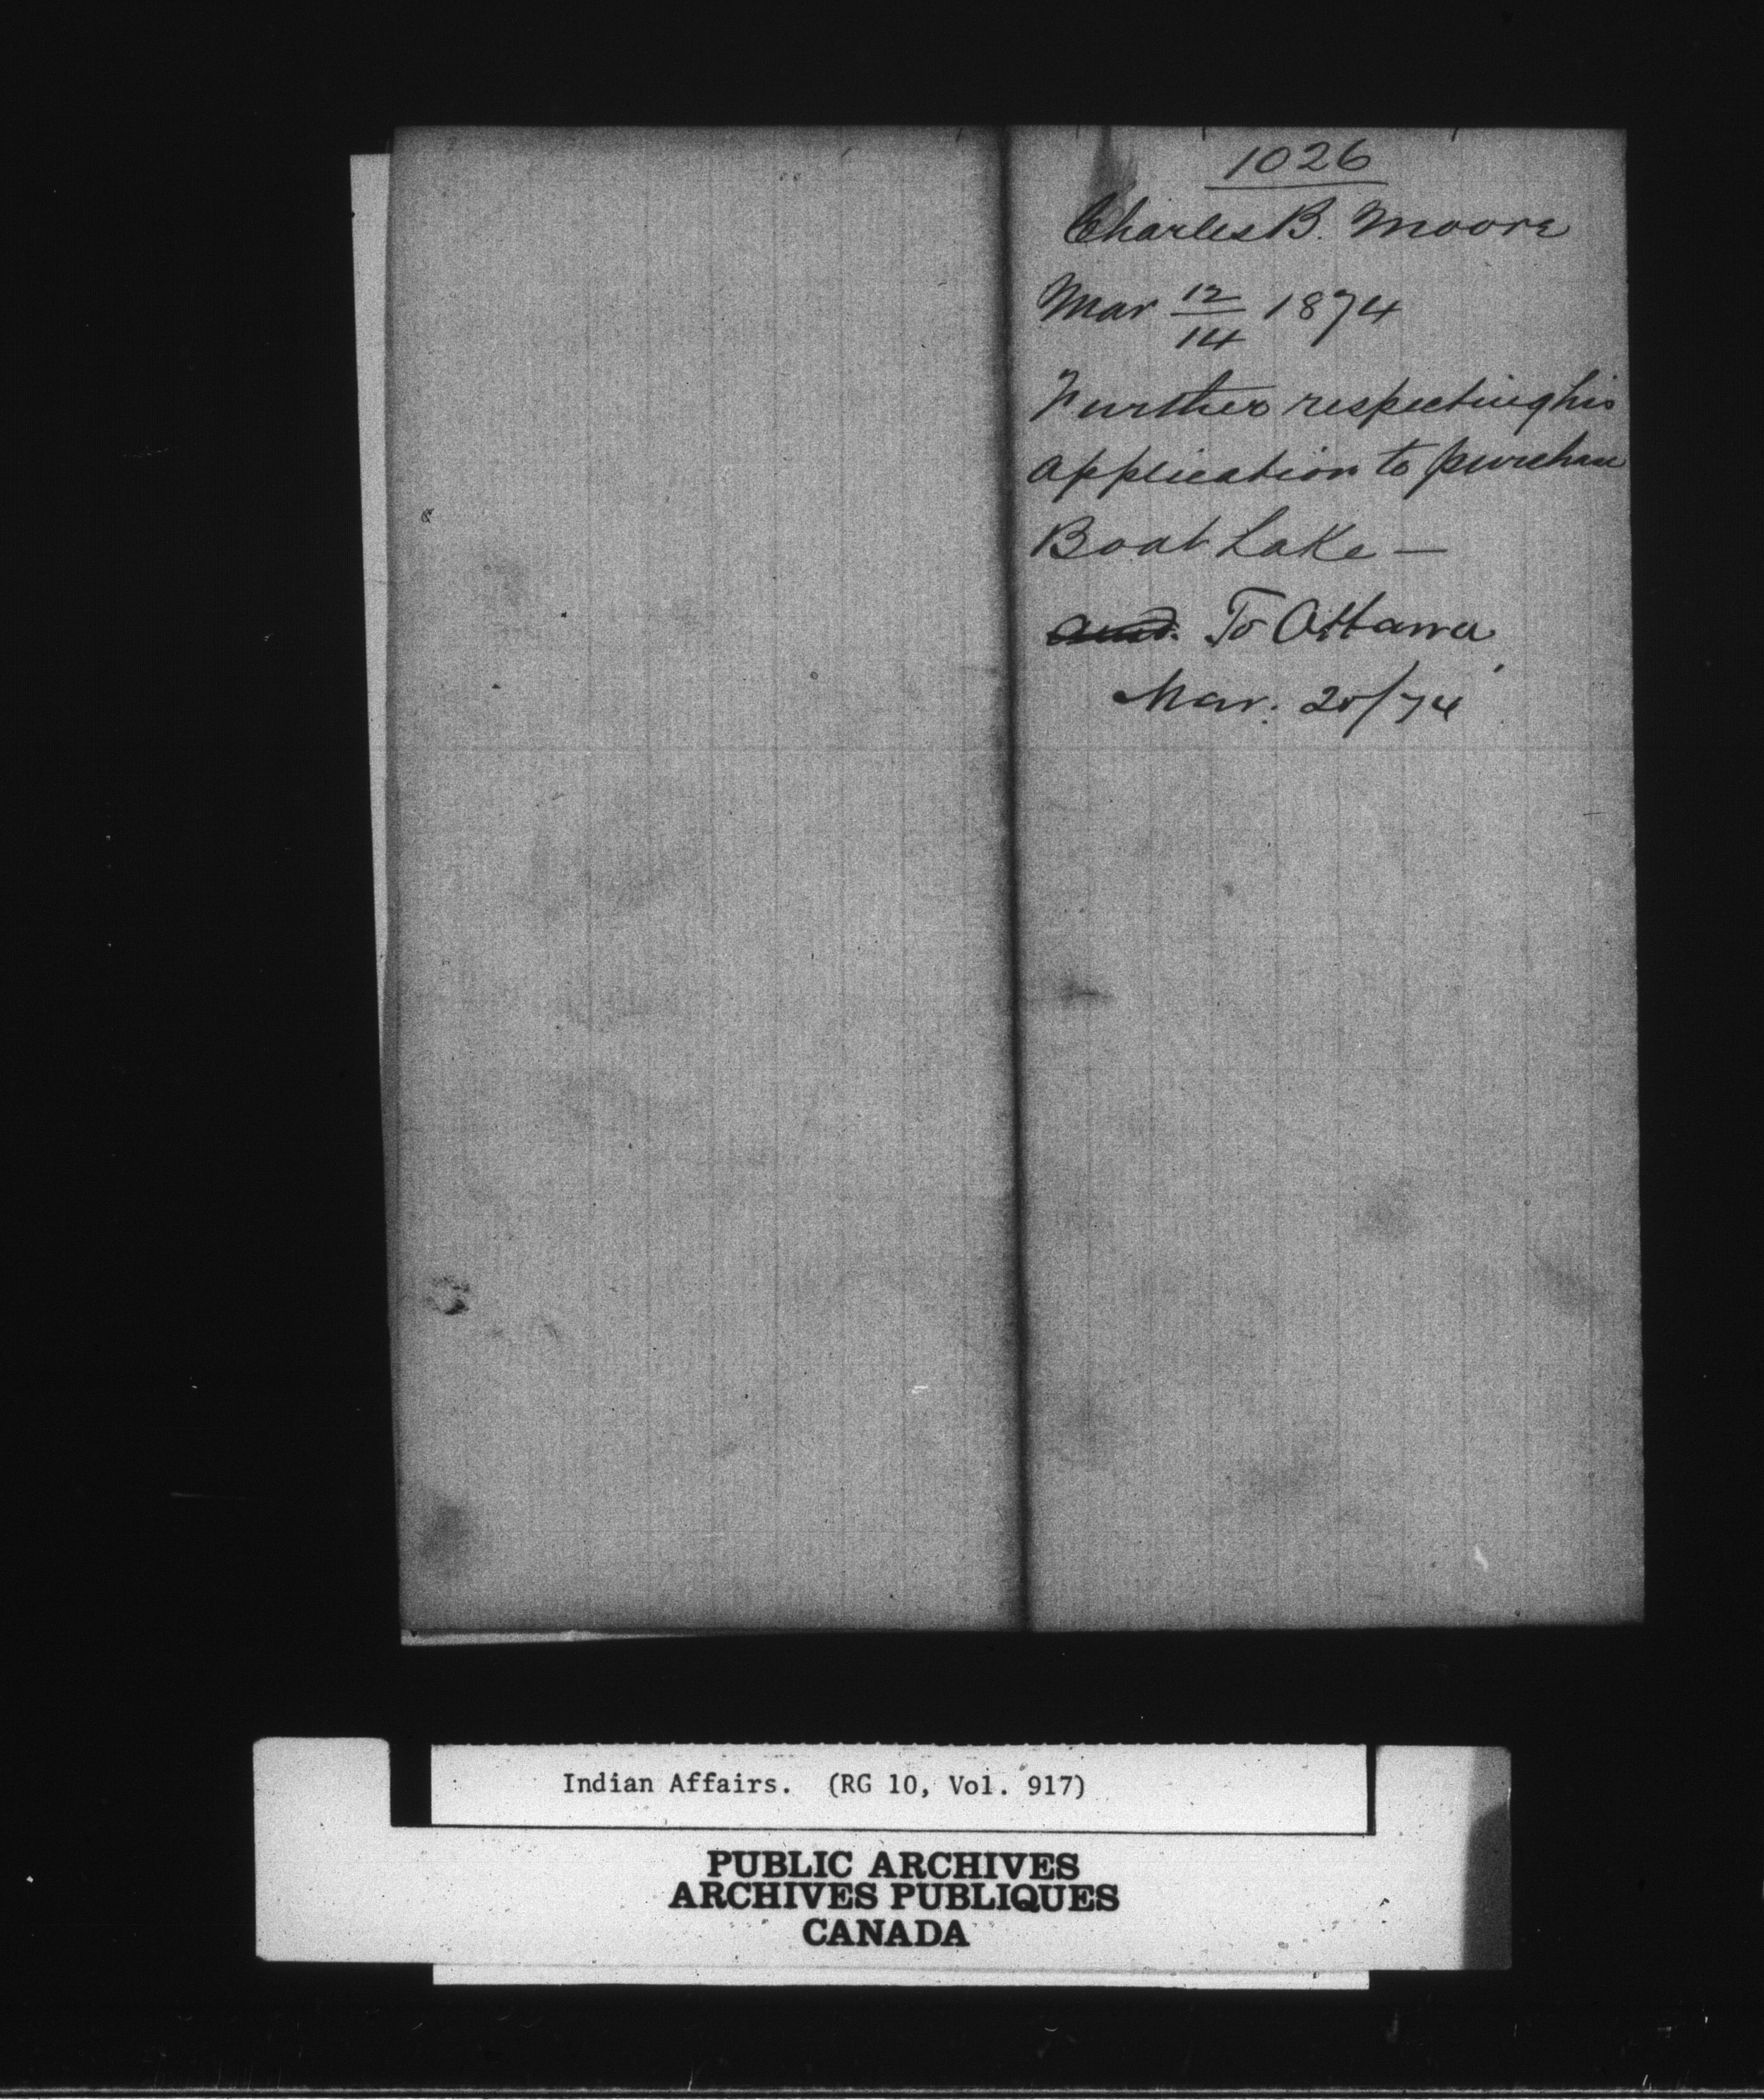 1026
Charles B. Moore
Mar 12/14 1874
Further respecting his
application to purchase
Boat Lake —
To Ottawa
Mar. 20/74
Indian Affairs. (RG 10, Vol. 917)
PUBLIC ARCHIVES
ARCHIVES PUBLIQUES
CANADA